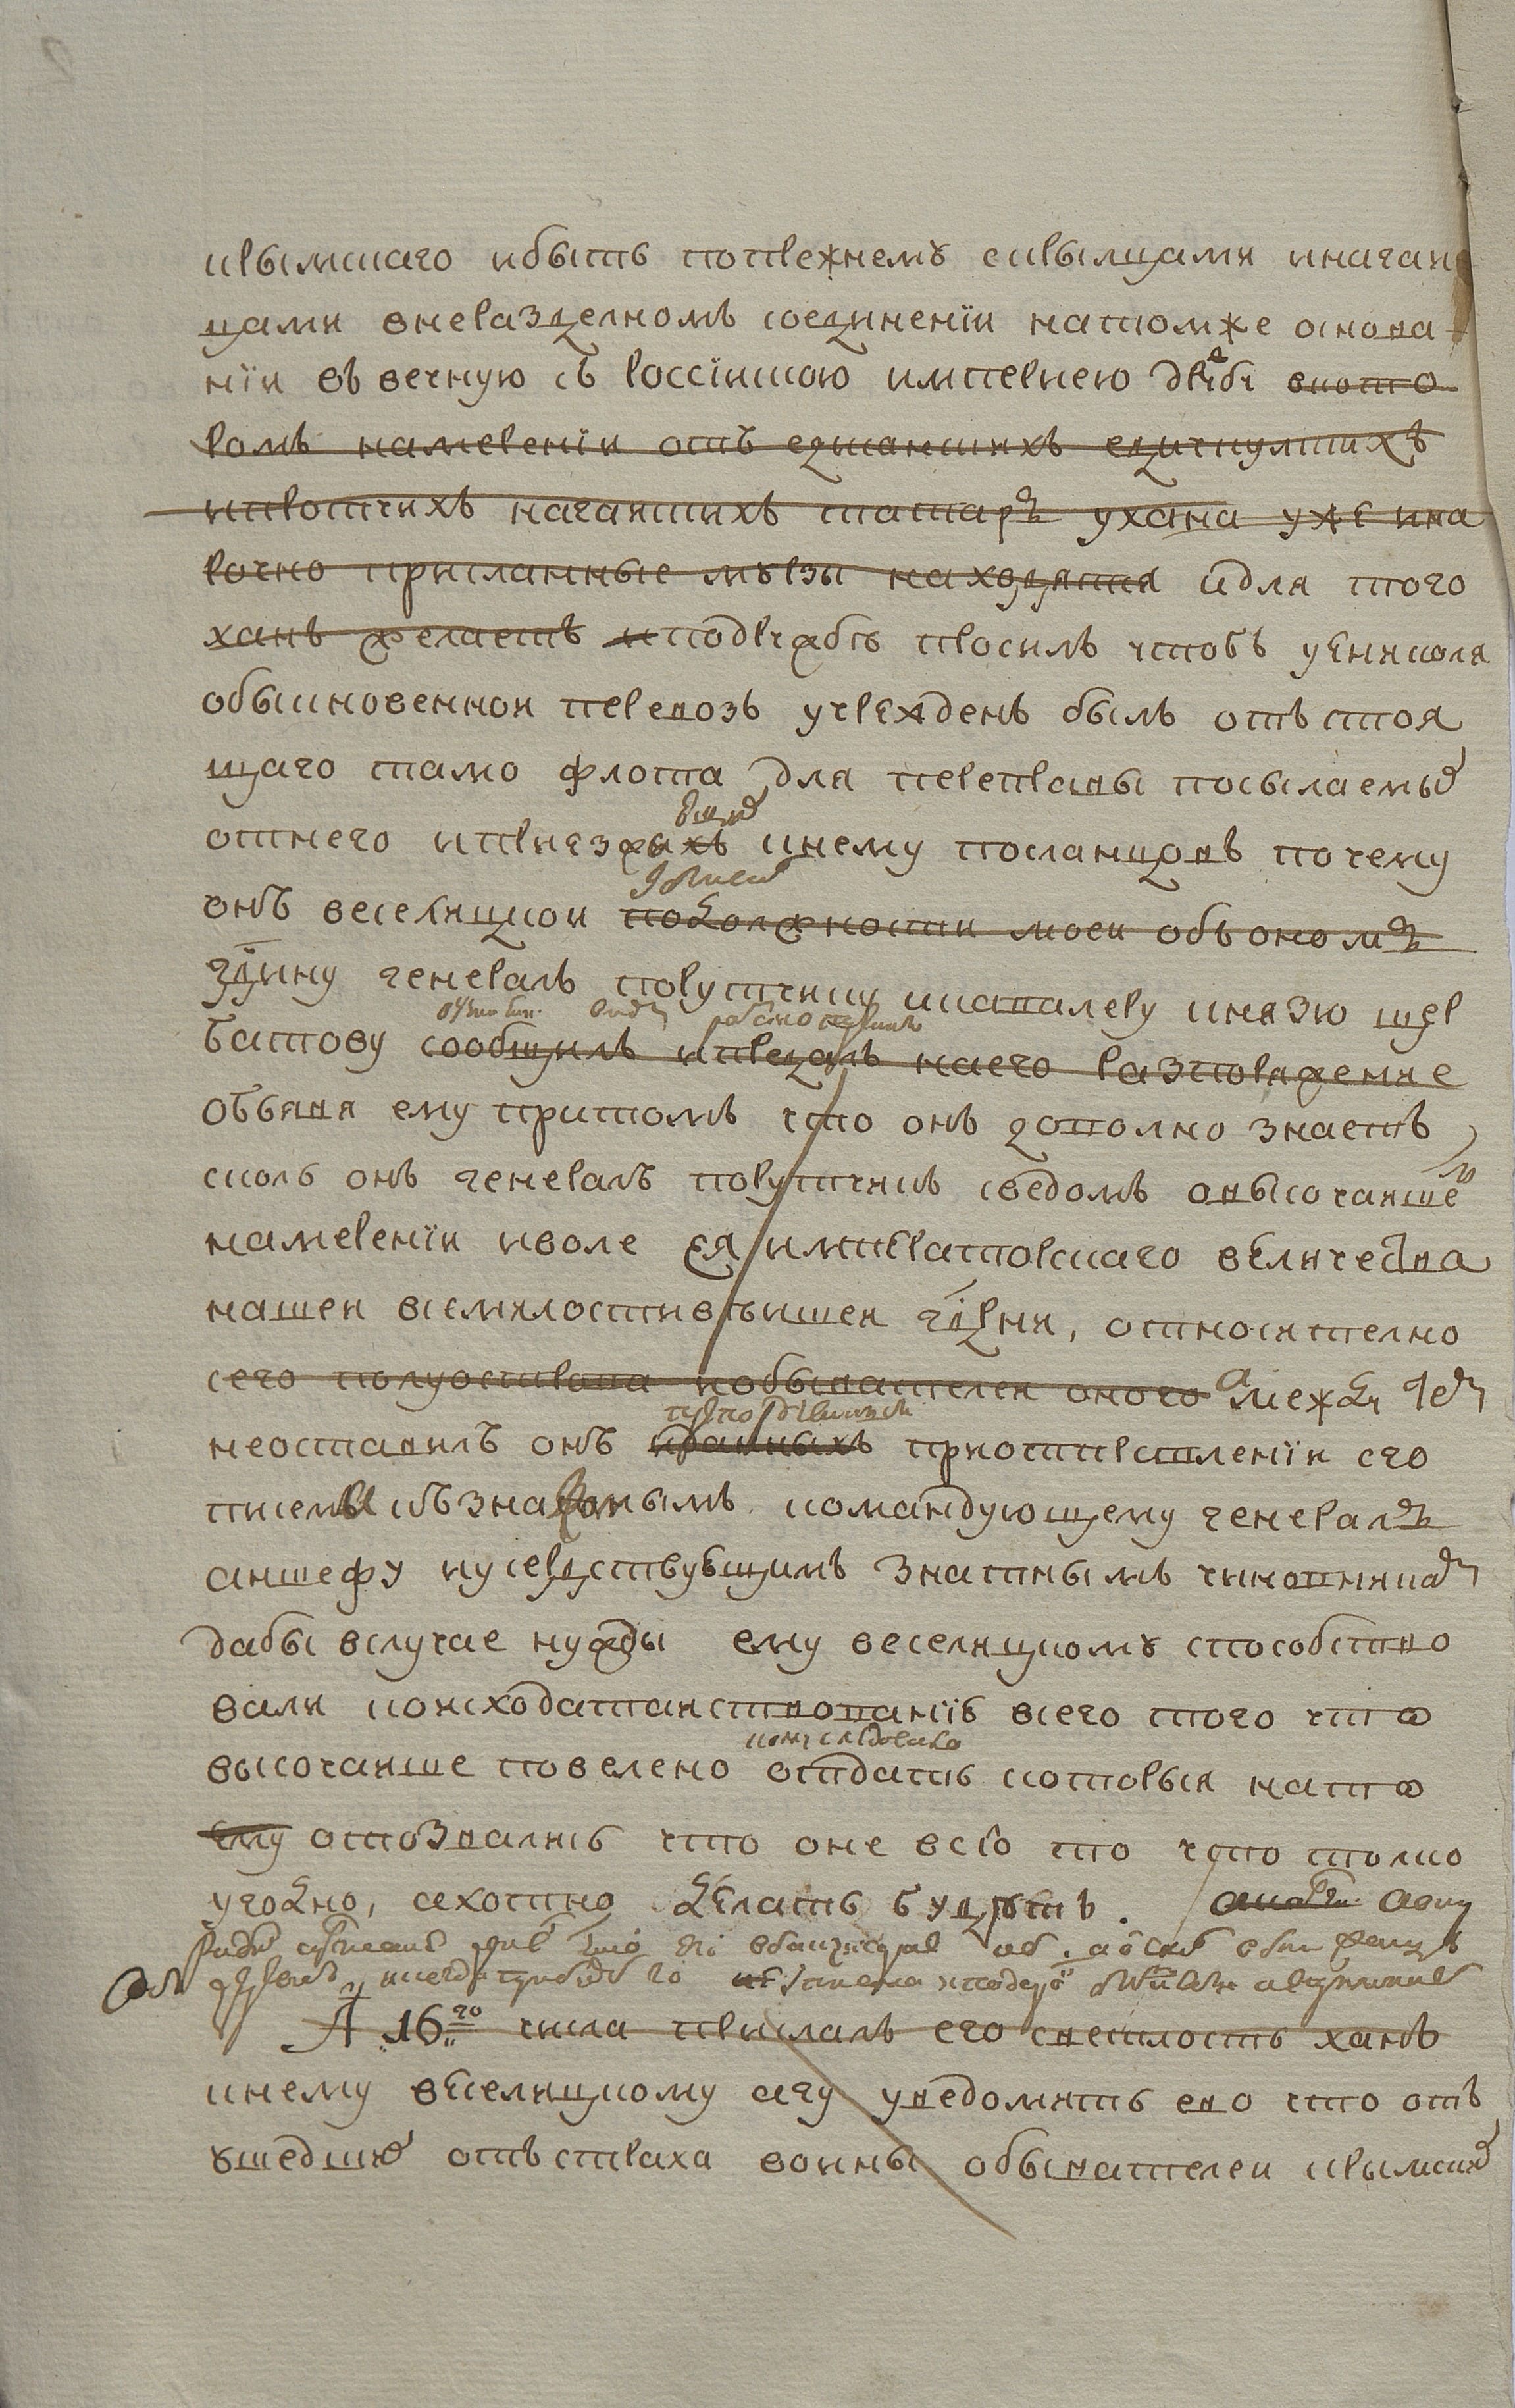 крымскаго и быть попрежнему с крымцами и нагаи
цами внеразделномъ соединенїи на томже основа
нїи въ вечную съ россїискою империею дружбу вкото
ромъ намеренїи отъ едисанскихъ едичкулскихъ
и протчихъ нагаискихъ татаръ ухана уже и на
рочно присланные мурзы находятся и для того
ханъ желаетъ и подружбе просилъ чтобъ у еникаля
обыкновеннои перевозъ учрежденъ былъ отъ стоя
щаго тамо флота для переправы посылаемых
отнего и приезжихъ кнему посланцовъ почему
онъ веселицкои по должности моеи объ ономъ
гдину генералъ порутчику и кавалеру князю щер
батову сообщилъ и предалъ на его разпоряжение
объявя ему притомъ что онъ доволно знаетъ
сколь онъ генералъ порутчикъ сведомъ о высочаишем
намеренїи и воле ея императорскаго величества
нашеи всемилостивѣишеи гдрни, относително
сего полуострова и обывателеи оного а между тем
неоставилъ онъ приотправленїи его
командующему генералъ
аншефу и усердствующимъ знатнымъ чиновникам
дабы вслучае нужды ему веселицкому способство
вали кысходатаиствованїю всего того что
высочаише повелено кому следовало отдать которыя на то
ему отозвались что оне всїо то что толко
угодно, и охотно делать будутъ.
А 16го числа прислалъ его светлость ханъ
кнему веселицкому агу уведомить ево что отъ
ушедших отъ страха воины обывателеи крымских